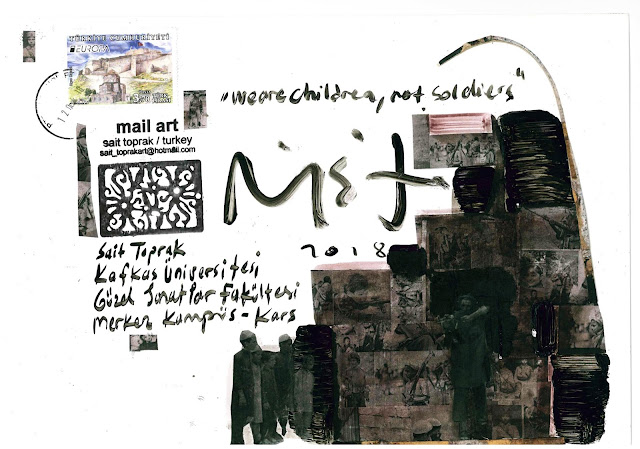 TÜRKİYE CUMHURİYETİ
EUROPA
"we are children, not soldiers"
mail art
sait toprak / turkey
sait_toprakart@hotmail.com
2018
Sait Toprak
Kafkas Üniversitesi
Güzel Sanatlar Fakültesi
Merkez Kampüs - Kars